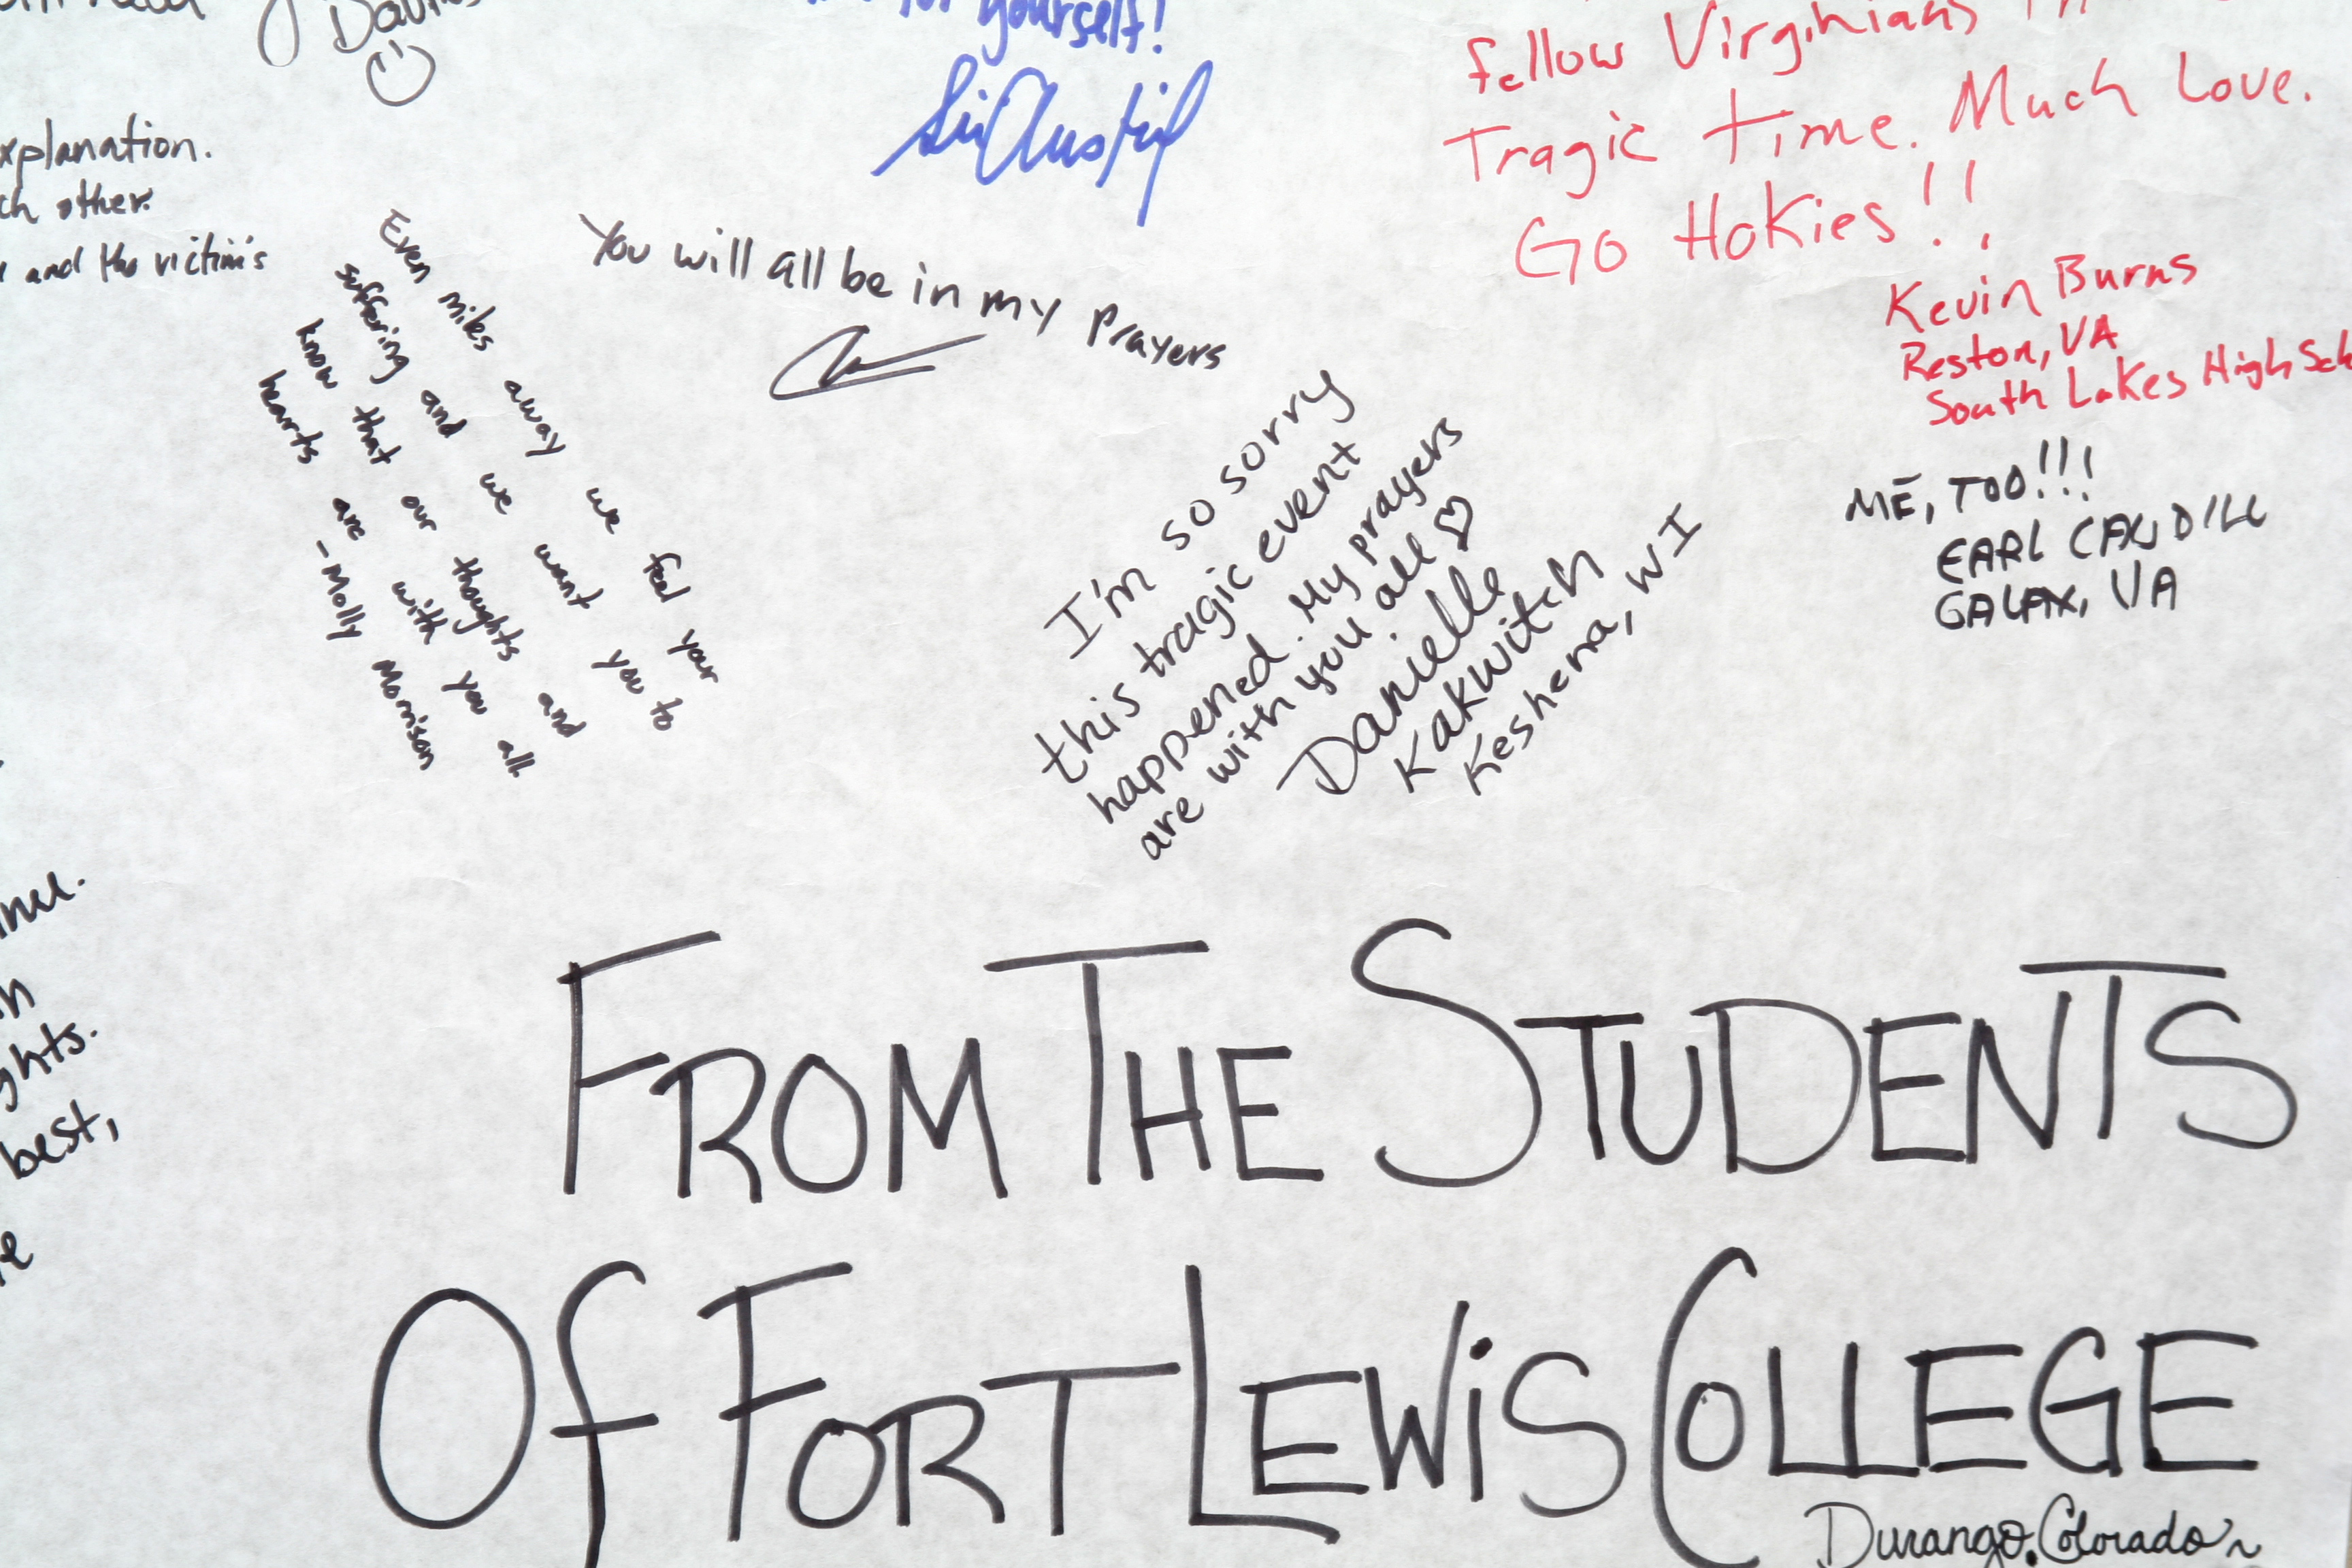 Davi
for yourself!
fellow Virginians in
Tragic time. Much Love.
Go Hokies!!
Kevin Burns
Reston, VA
South Lakes High Sch
ME, TOO!!!
EARL CAUDILL
GALAX, VA
xplanation.
ch other.
and the victim's
Even miles away we feel your
suffering and we want you to
know that our thoughts and
hearts are with you all
-Molly Morrison
You will all be in my prayers
I'm so sorry
this tragic event
happened. My prayers
are with you all ♡
Danielle
Kakwitch
Keshena, WI
ghts.
best,
FROM THE STUDENTS
Of FORT LEWiS COLLEGE
Durango, Colorado~